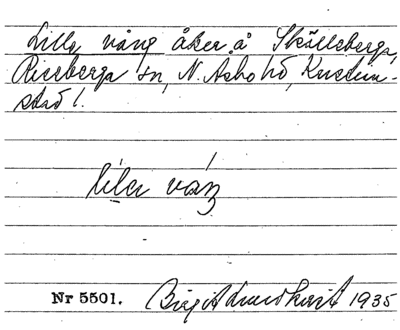 Lilla vång åker å Skälleberga,
Riseberga sn, N. Åsbo hd, Kristian-
stad l.
lilla váŋ
Nr 5501. Birgit Lundkvist 1935